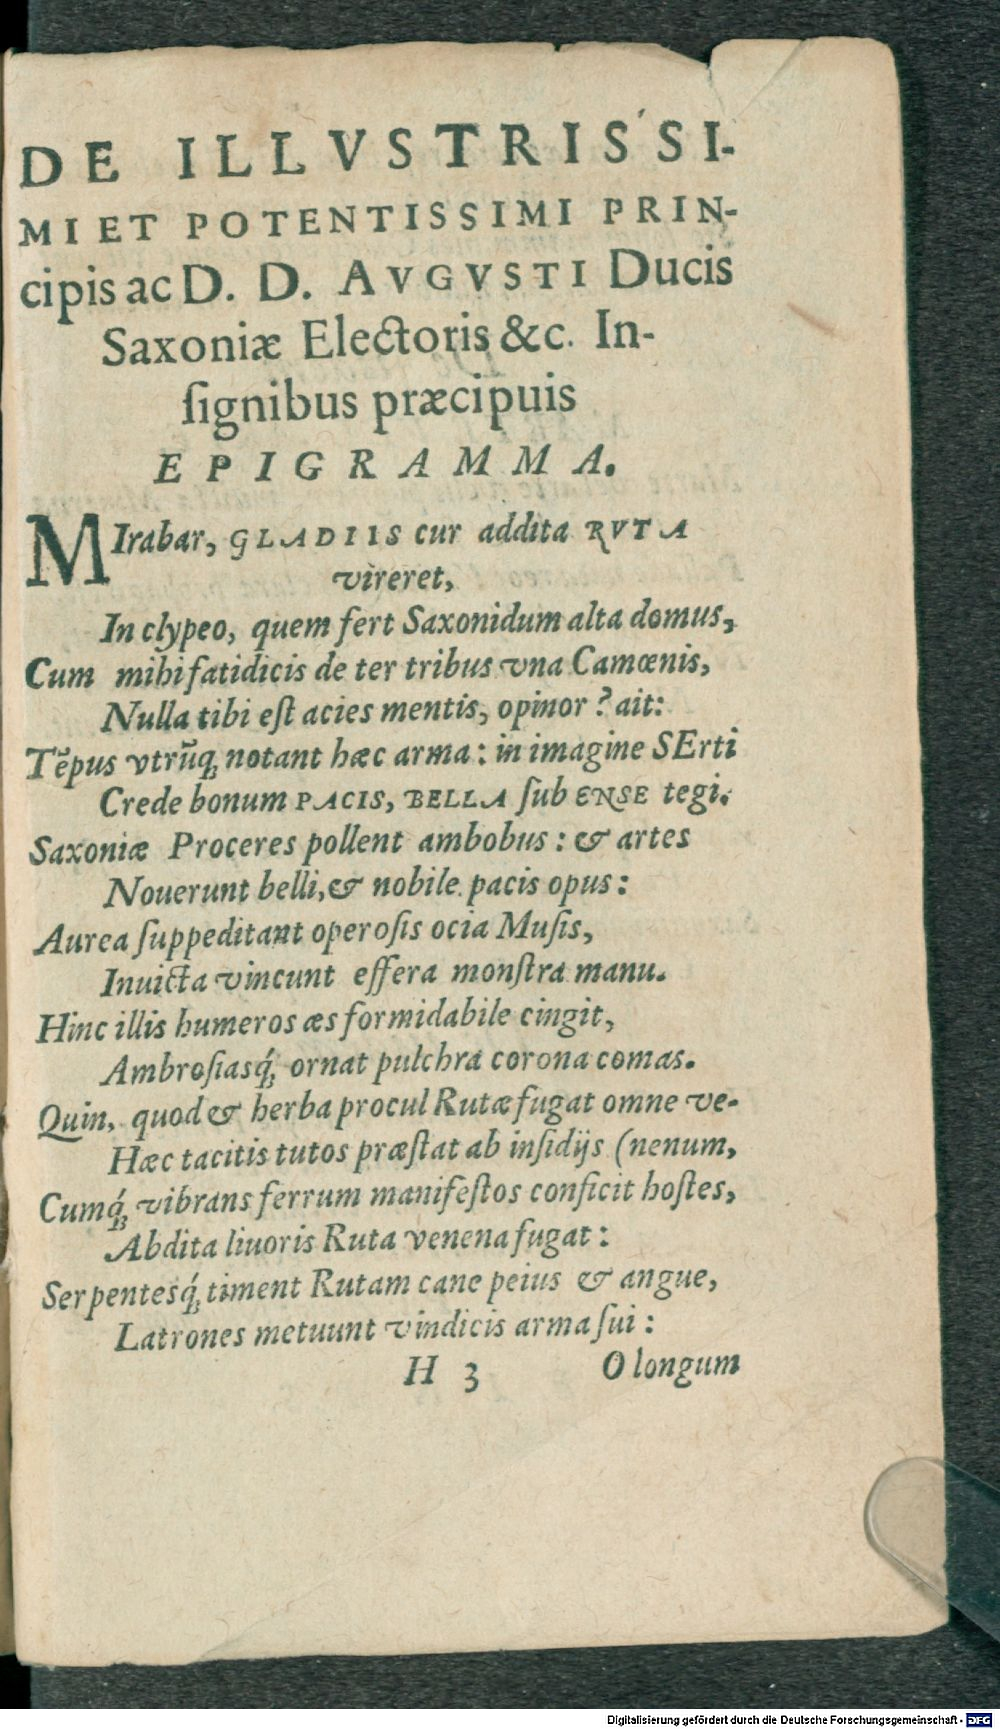 DE ILLVSTRISSI-
MI ET POTENTISSIMI PRIN-
cipis ac D. D. AVGVSTI Ducis
Saxoniæ Electoris &c. In-
ſignibus præcipuis
EPIGRAMMA.
MIrabar, GLADIIS cur addita RVTA
vireret,
In clypeo, quem fert Saxonidum alta domus,
Cum mihi fatidicis de ter tribus vna Camœnis,
Nulla tibi eſt acies mentis, opinor? ait:
Tẽpus vtrũq́; notant hæc arma: in imagine SErti
Crede bonum PACIS, BELLA ſub ENSE tegi.
Saxoniæ Proceres pollent ambobus: & artes
Nouerunt belli, & nobile pacis opus:
Aurea ſuppeditant operoſis ocia Muſis,
Inuicta vincunt effera monſtra manu.
Hinc illis humeros æs formidabile cingit,
Ambroſiasq́; ornat pulchra corona comas.
Quin, quod & herba procul Rutæ fugat omne ve-
Hæc tacitis tutos præſtat ab inſidijs (nenum,
Cumq́; vibrans ferrum manifeſtos conficit hoſtes,
Abdita liuoris Ruta venena fugat:
Serpentesq́; timent Rutam cane peius & angue,
Latrones metuunt vindicis arma ſui:
H 3 O longum
Digitalisierung gefördert durch die Deutsche Forschungsgemeinschaft - DFG